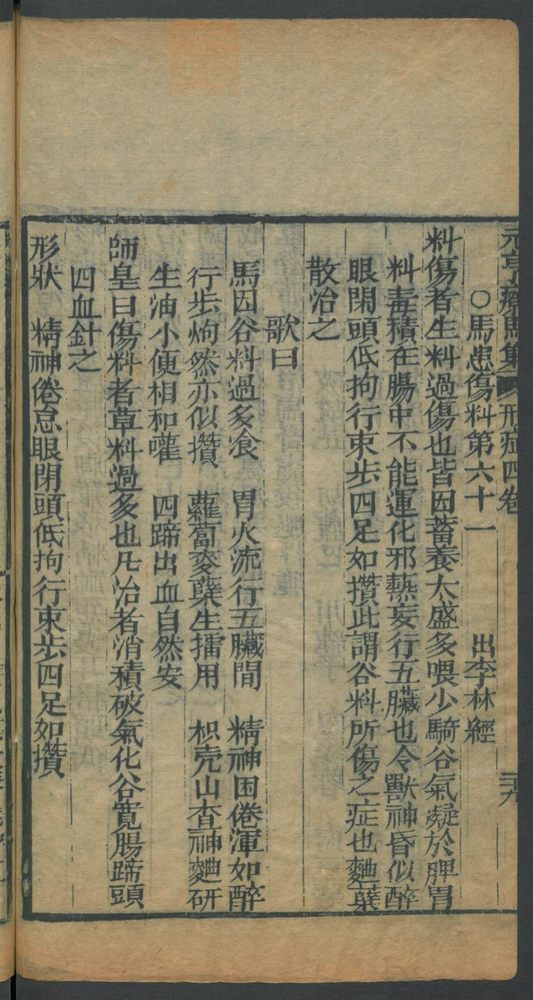 元亨療馬集 形症四卷
○馬患傷料第六十一 出李林經
料傷者生料過傷也皆因蓄養太盛多喂少騎谷氣凝於脾胃
料毒積在腸中不能運化邪熱妄行五臟也令獸神昏似醉
眼閉頭低拘行束步四足如攢此謂谷料所傷之症也麯蘖
散治之
歌曰
馬因谷料過多飡 胃火流行五臟間 精神困倦渾如醉
行步㶷然亦似攢 蘿蔔麥蘖生擂用 枳壳山查神麯研
生油小便相和嚾 四蹄出血自然安
師皇曰傷料者草料過多也凡治者消積破氣化谷寬腸蹄頭
四血針之
形狀 精神倦怠眼閉頭低拘行束步四足如攢